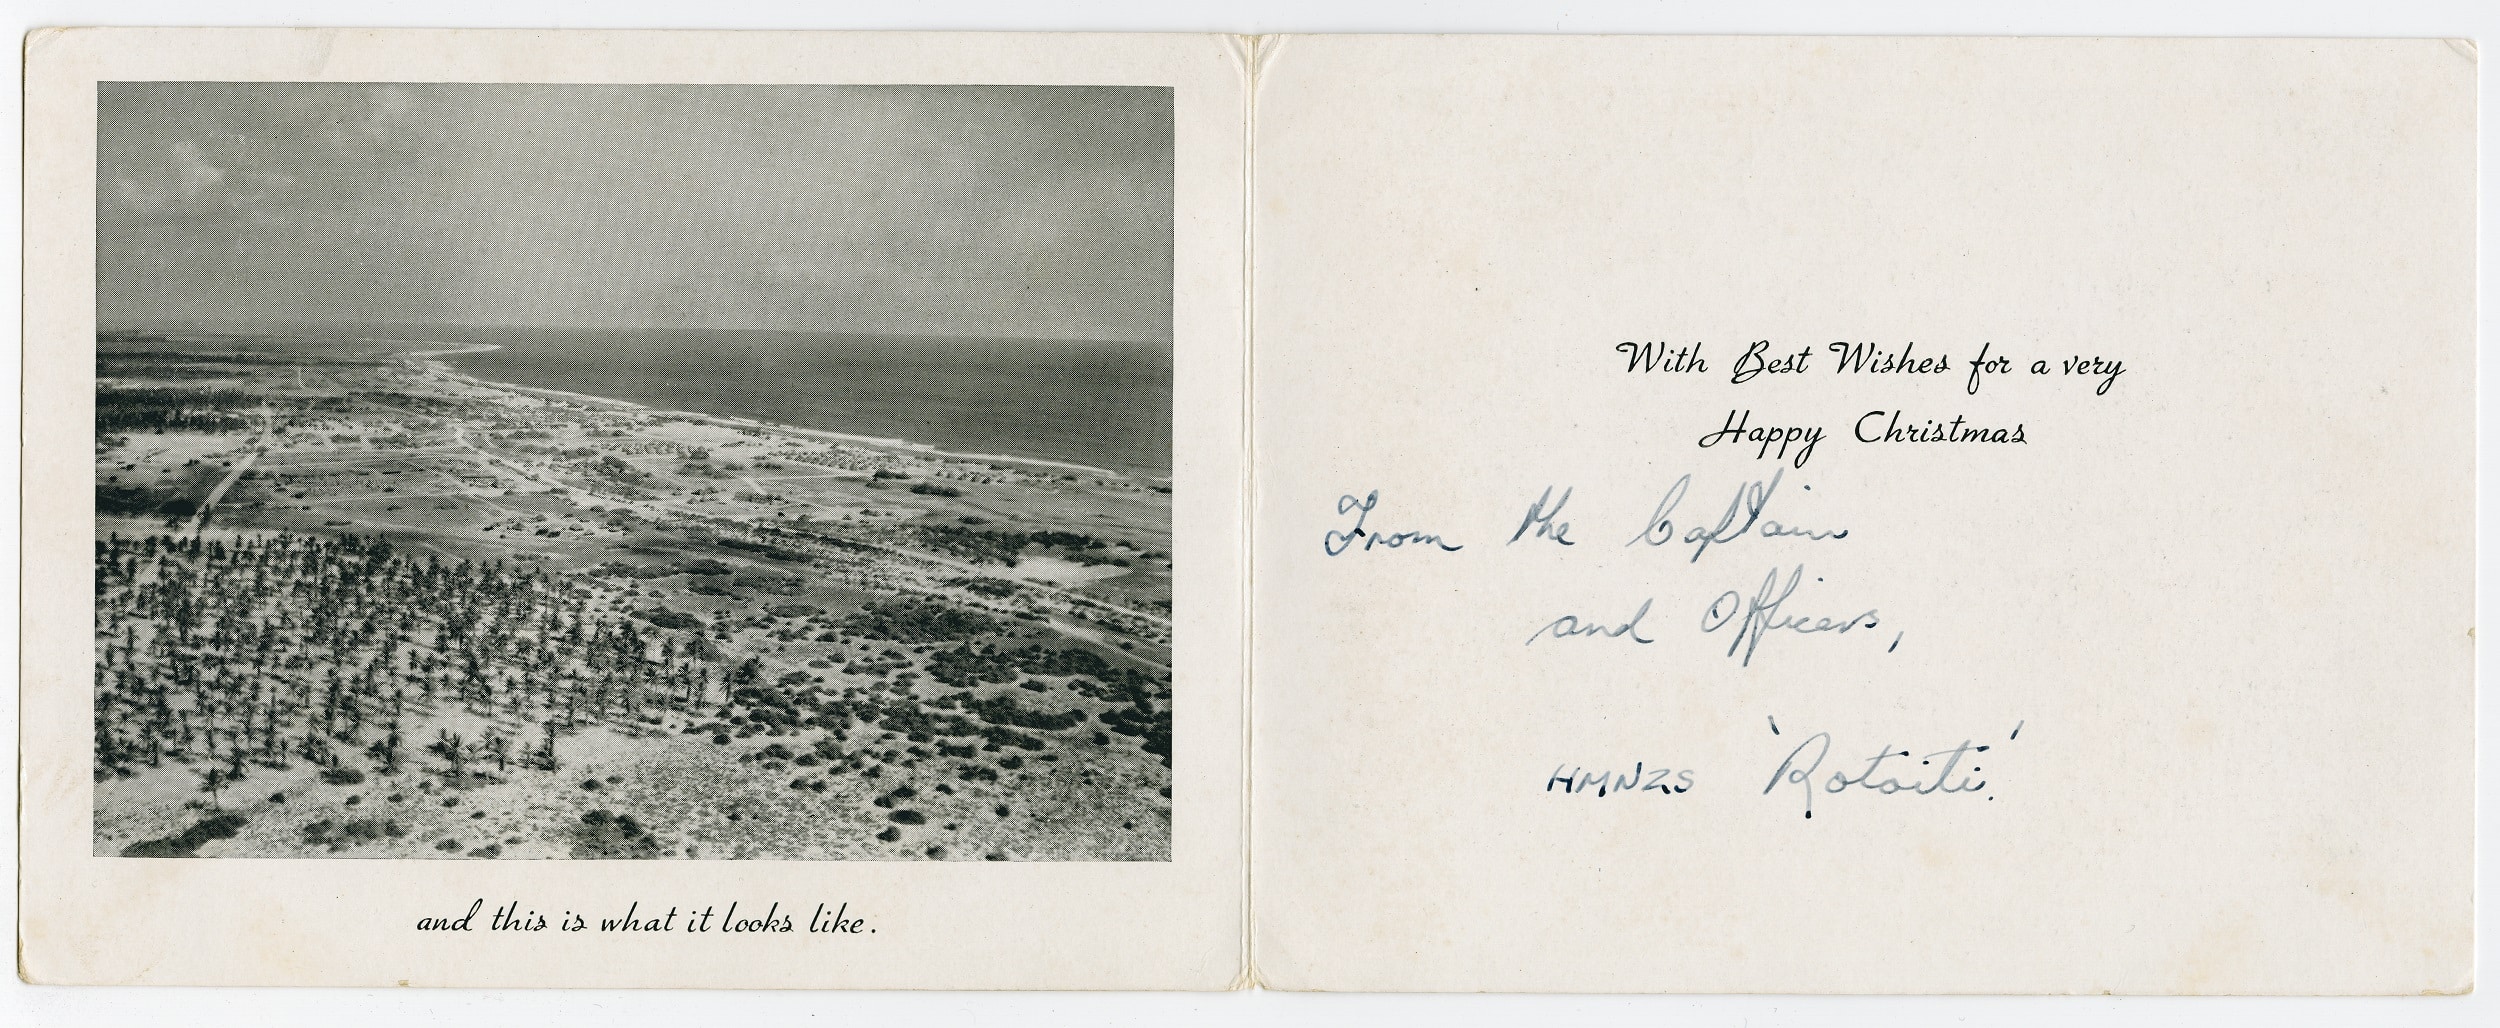 and this is what it looks like.
With Best Wishes for a very
Happy Christmas
From the Captain
and Officers,
HMNZS 'Rotoiti.'